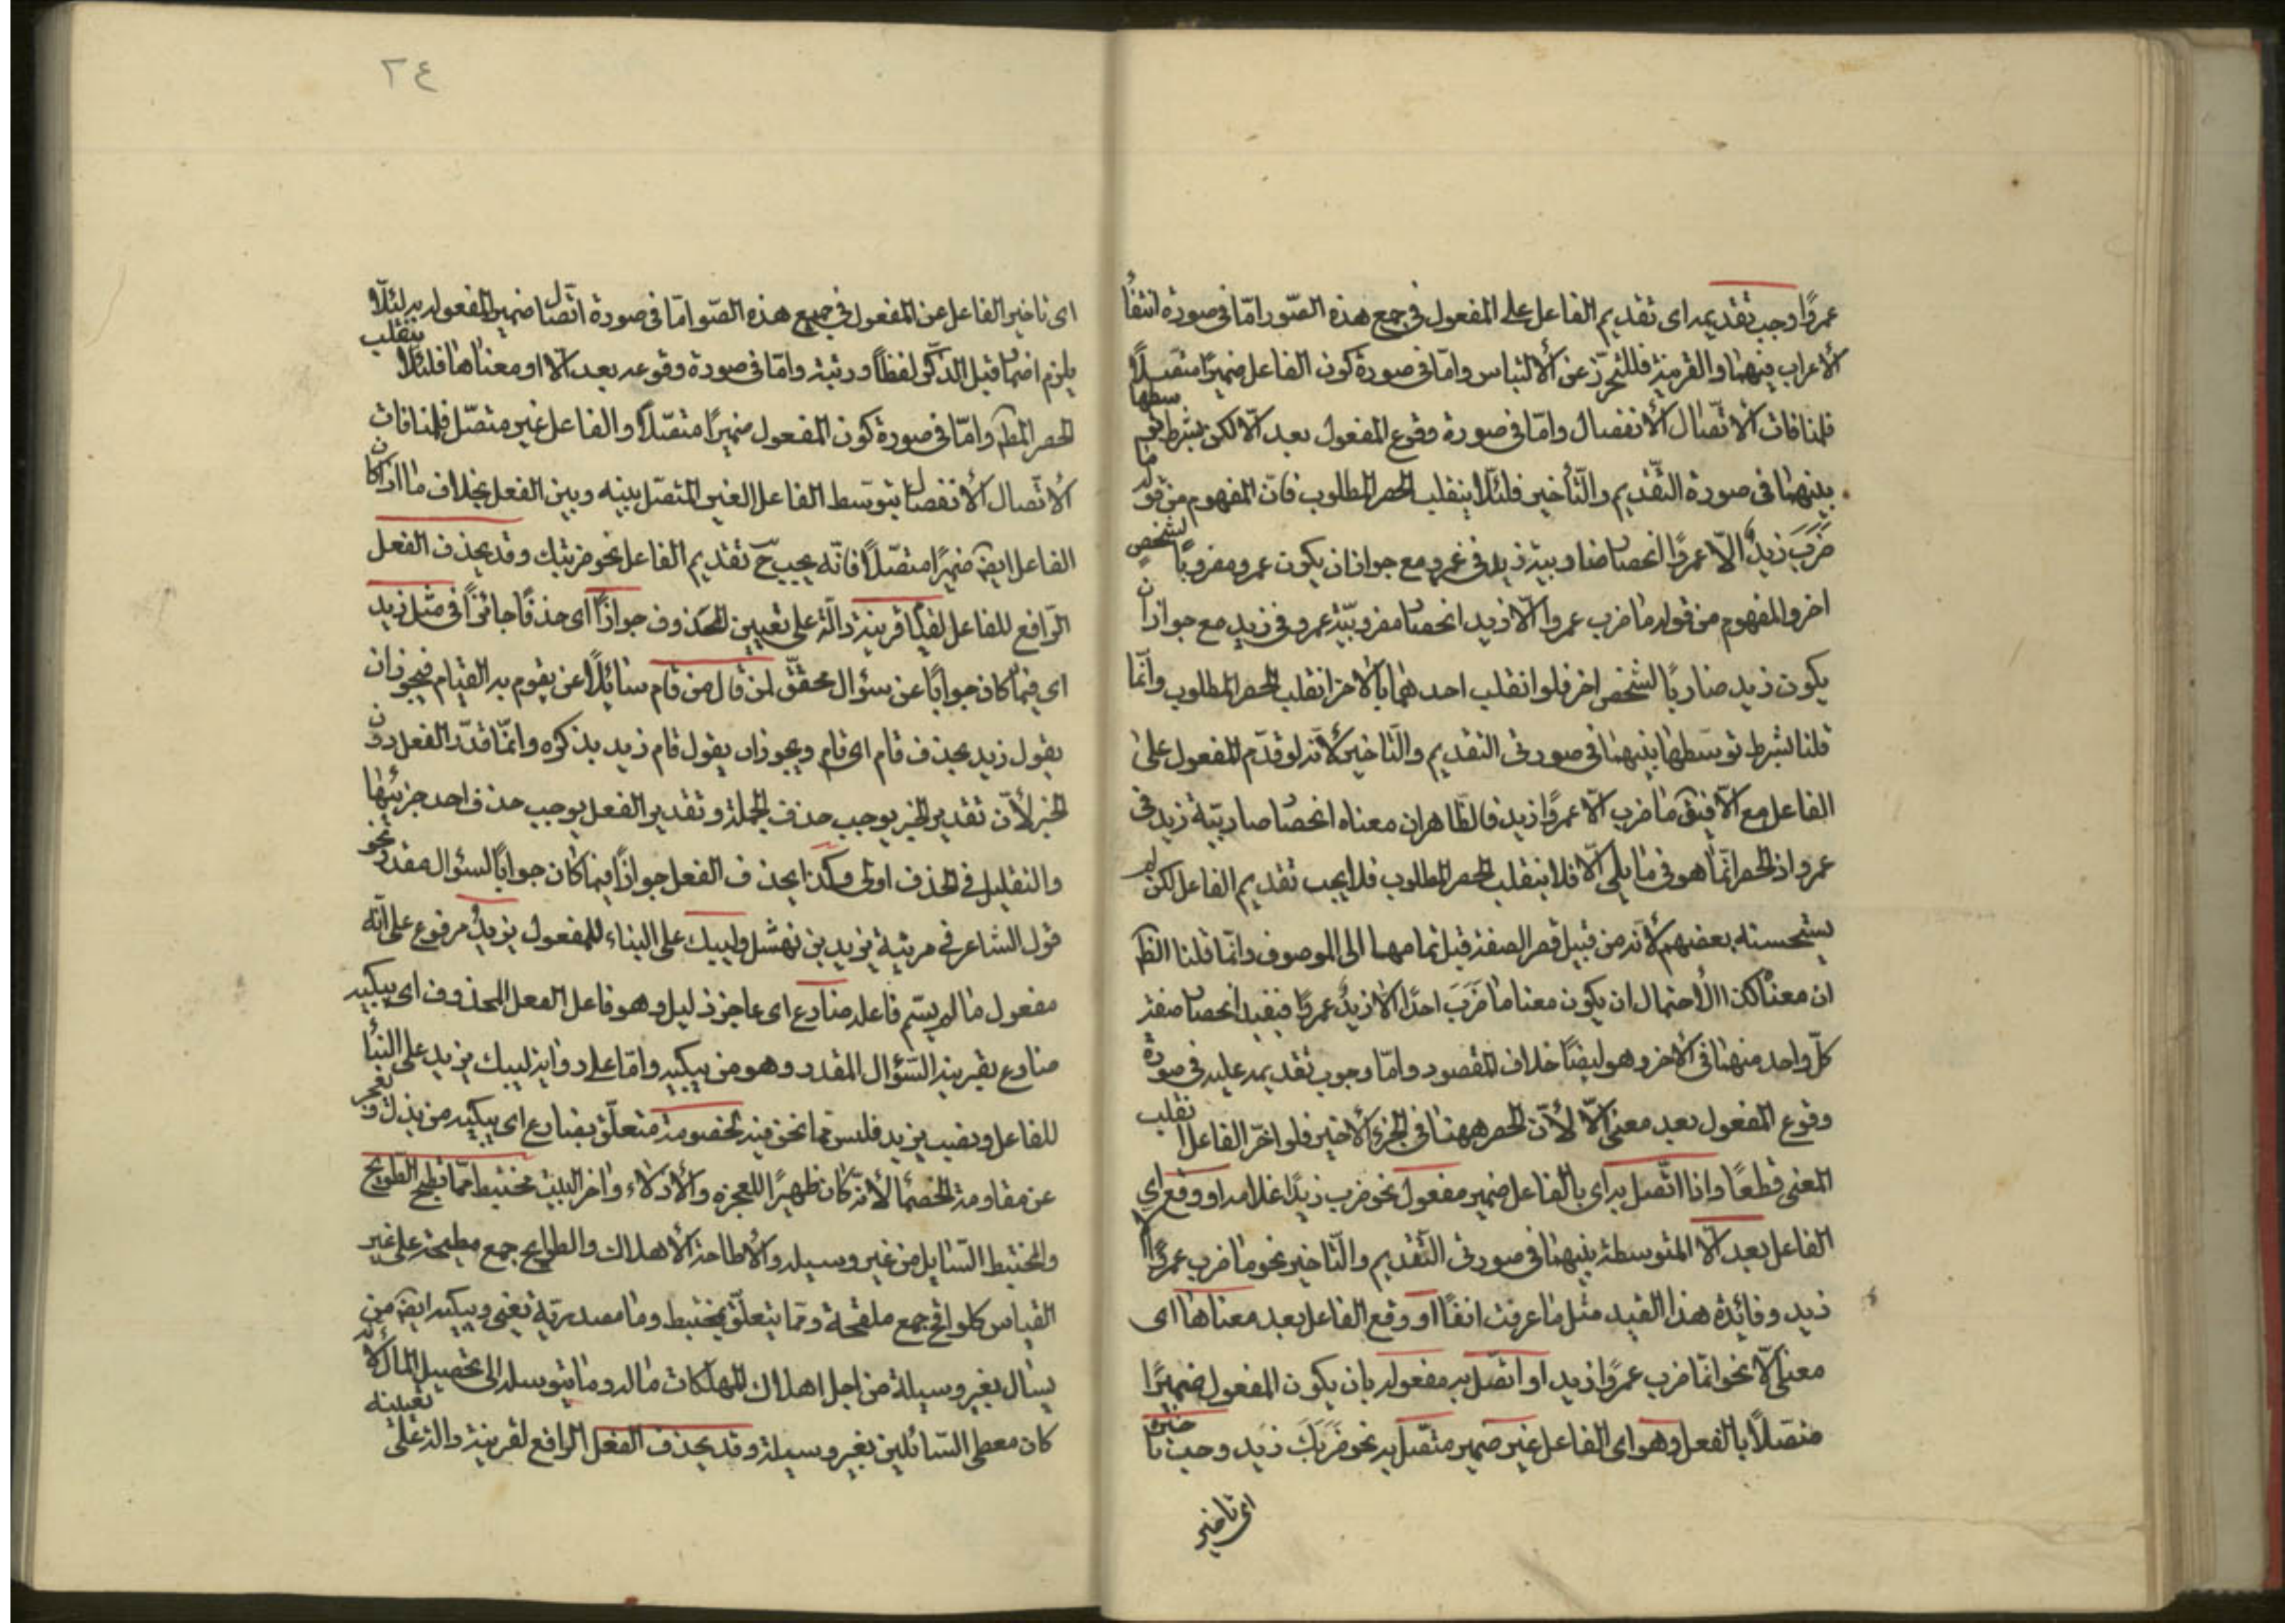 عمروًا وجب تقديمه اى تقديم الفاعل على المفعول فى جمع هذه الصّور امّا فى صورة انتفأ
الأعراب فيهما والقرينة فللتحرّز عن الألتباس وامّا فى صورة كون الفاعل ضميرًا متّصلًا
فلمنافات الأتّصال الأنفصال وامّا فى صورة وقوع المفعول بعد الّا لكن بشرط توسطها
بينهما فى صورة التّقديم والتّأخير فلئلّا ينقلب الحصر المطلوب فانّ المفهوم من قوله ما
ضَرَبَ زيدٌ الّا عمروًا انحصا ضاربيّة زيد فى عمرو مع جواز ان يكون عمرو مضروبًا لشخصٍ
اخر والمفهوم من قوله ما ضرب عمروا الّا زيد انحصا مضروبيّة عمرو فى زيد مع جواز ان
يكون زيد ضاربًا لشخص اخر فلو انقلب احدهما بالأخر انقلب الحصر المطلوب وانّما
قلنا بشرط توسّطها بينهما فى صورتى التقديم والتّاخير لأنّه لو قدّم المفعول على
الفاعل مع الّا فيقَ ما ضرب الّا عمروًا زيد فالظّاهر ان معناه انحصا ضاربيّة زيد فى
عمرو اذ الحصر انّما هو فى ما يلى الّا فلا ينقلب الحصر المطلوب فلا يجب تقديم الفاعل لكن لم
يستحسنه بعضهم لأنّه من قبيل قصر الصفة قبل تمامها الى الموصوف وانّما قلنا الظّ
ان معناه كذا الأحتمال ان يكون معناه ما ضَرَبَ احدًا الّا زيدٌ عمروًا فيفيد انحصا صفة
كلّ واحد منهما فى الأخر وهو ايضًا خلاف المقصود وامّا وجوب تقديمه عليه فى صورة
وقوع المفعول بعد معنى الّا لأنّ الحصر ههنا فى الجزء الأخير فلو اخّر الفاعل انقلب
المعنى قطعًا واذا اتّصل به اى بالفاعل ضمير مفعول نحو ضرب زيدًا غلامه او وقع اى
الفاعل بعد الّا المتوسطة بينهما فى صورتى التّقديم والتّاخير نحو ما ضرب عمروًا الّا
زيد وفائدة هذا القيد مثل ما عرفت انفًا او وقع الفاعل بعد معناها اى
معنى الّا نحو انّما ضرب عمروًا زيد او اتّصل به مفعوله بان يكون المفعول ضميرًا
متّصلًا بالفعل وهو اى الفاعل غير ضمير متّصل به نحو ضَرَبَكَ زيد وجب تاخيره
اى تاخير
٢٤
اى تاخير الفاعل عن المفعول فى جميع هذه الصّو امّا فى صورة اتّصال ضمير المفعول به لئلّا
يلزم اضما قبل الذكر لفظًا ورتبة وامّا فى صورة وقوعه بعد الّا او معناها فلئلّا ينقلب
الحصر المط وامّا فى صورة كون المفعول ضميرًا متّصلًا والفاعل غير متّصل فلمنافات
الأتّصال الأنفصا بتوسّط الفاعل الغير المتّصل بينه وبين الفعل بخلاف ما اذا كان
الفاعل ايضَ ضميرًا متّصلًا فانّه يجب حَ تقديم الفاعل نحو ضربتك وقد يحذف الفعل
الرّافع للفاعل لقيا قرينة دالّة على تعيين المحذوف جوازًا اى حذفًا جائزًا فى مثل زيد
اى فيما كان جوابًا عن سؤال محقّق لمن قال من قام سائلًا عن يقوم به القيام فيجوز ان
يقول زيد بحذف قام اى قام ويجوز ان يقول قام زيد بذكره وانّما قدّر الفعل دون
الخبر لأنّ تقدير الخبر يوجب حذف الجملة وتقدير الفعل يوجب حذف احد جزئيها
والتقليل فى الحذف اولى وكذا يحذف الفعل جوازًا فيما كان جوابًا لسؤال مقدر نحو
قول الشاعر فى مرثية يزيد بن نهشل وليبك على البناء للمفعول يزيدُ مرفوع على انّه
مفعول ما لم يسّم فاعله ضارع اى عاجز ذليل وهو فاعل الفعل المحذوف اى يبكيه
ضارع بقرينة السّؤال المقدر وهو من يبكيه وامّا على رواية ليبك يزيد على البنأ
للفاعل ونصب يزيد فليس ممّا نحن فيه لخصومة متعلّق بضارع اى يبكيه من يذل ويعجز
عن مقاومة الخصما لأنّه كان ظهيرًا للعجزة والأذلاء واخر البيت مختبط ممّا تطيح الطّوايح
والمختبط السّايل من غير وسيلة والأطاحة الأهلاك والطوايح جمع مطيحة على غير
القياس كلواقح جمع ملقحة وممّا يتعلّق بمختبط وما مصدريّة يعنى ويبكيه ايضَ من
يسأل بغير وسيلة من اجل اهلاك المهلكات ماله وما يتوسله الى تحصيل المال لأنّه
كان معطى السّائلين بغير وسيلة وقد يحذف الفعل الرافع لقرينة دالة على تعيينه